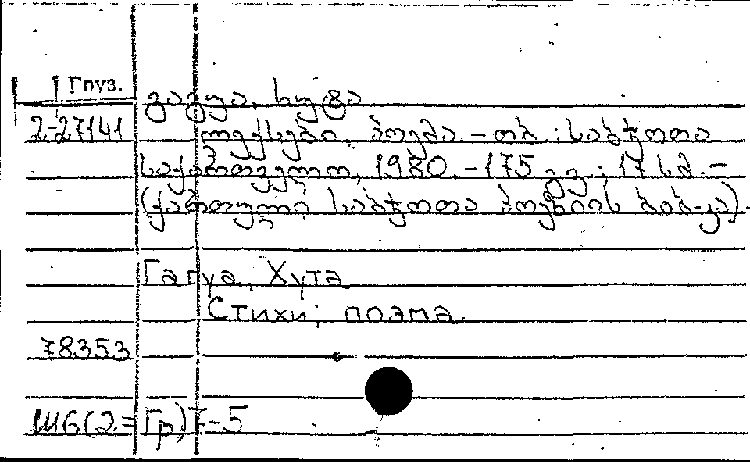 Груз.
გაგუა, ხუტა
2-27141 ლექსები, პოემა. - თბ.: საბჭოთა
საქართველო, 1980. - 175 გვ.; 17 სმ. -
(ქართული საბჭოთა პოეზიის ბიბ-კა).
Гагуа, Хута
Стихи; поэма.
78353
Ш6(2=Гр)7-5